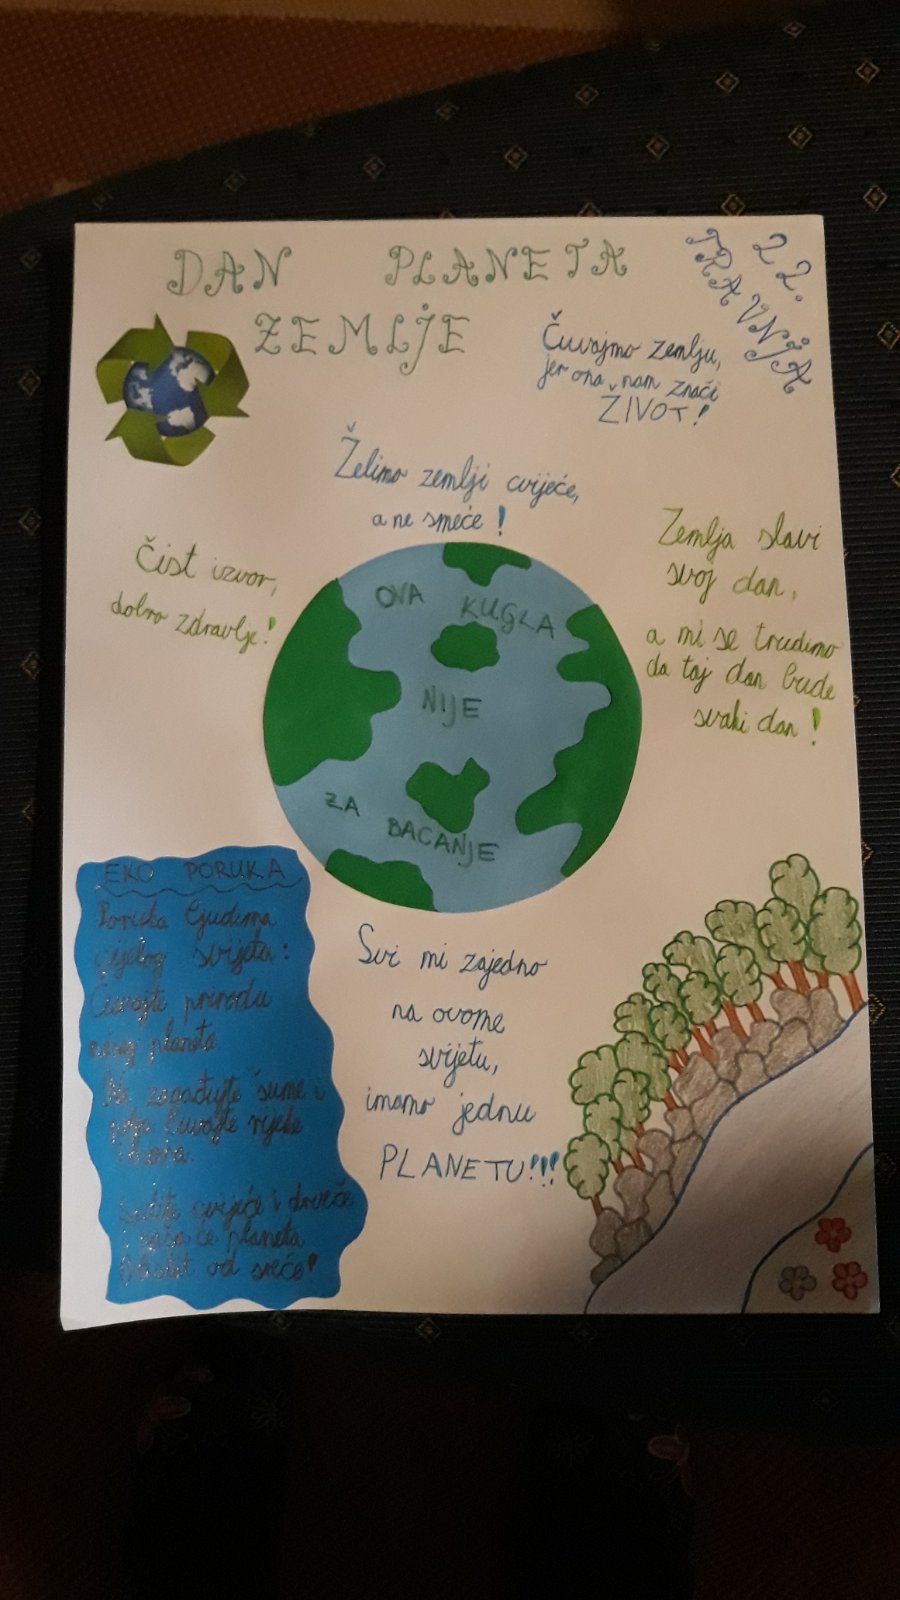 DAN PLANETA
ZEMLJE
22.
TRAVNJA
Čuvajmo zemlju,
jer ona nam znači
ŽIVOT!
Želimo zemlji cvijeće,
a ne smeće!
Čist izvor,
dobro zdravlje!
Zemlja slavi
svoj dan,
a mi se trudimo
da taj dan bude
svaki dan!
OVA KUGLA
NIJE
ZA BACANJE
EKO PORUKA
Poruka ljudima
cijelog svijeta:
Čuvajte prirodu
planeta
Ne zagađujte šume i
polja čuvajte rijeke
i mora.
Sadite cvijeće i drveće
i vaša će planeta
od sreće!
Svi mi zajedno
na ovome
svijetu,
imamo jednu
PLANETU!!!